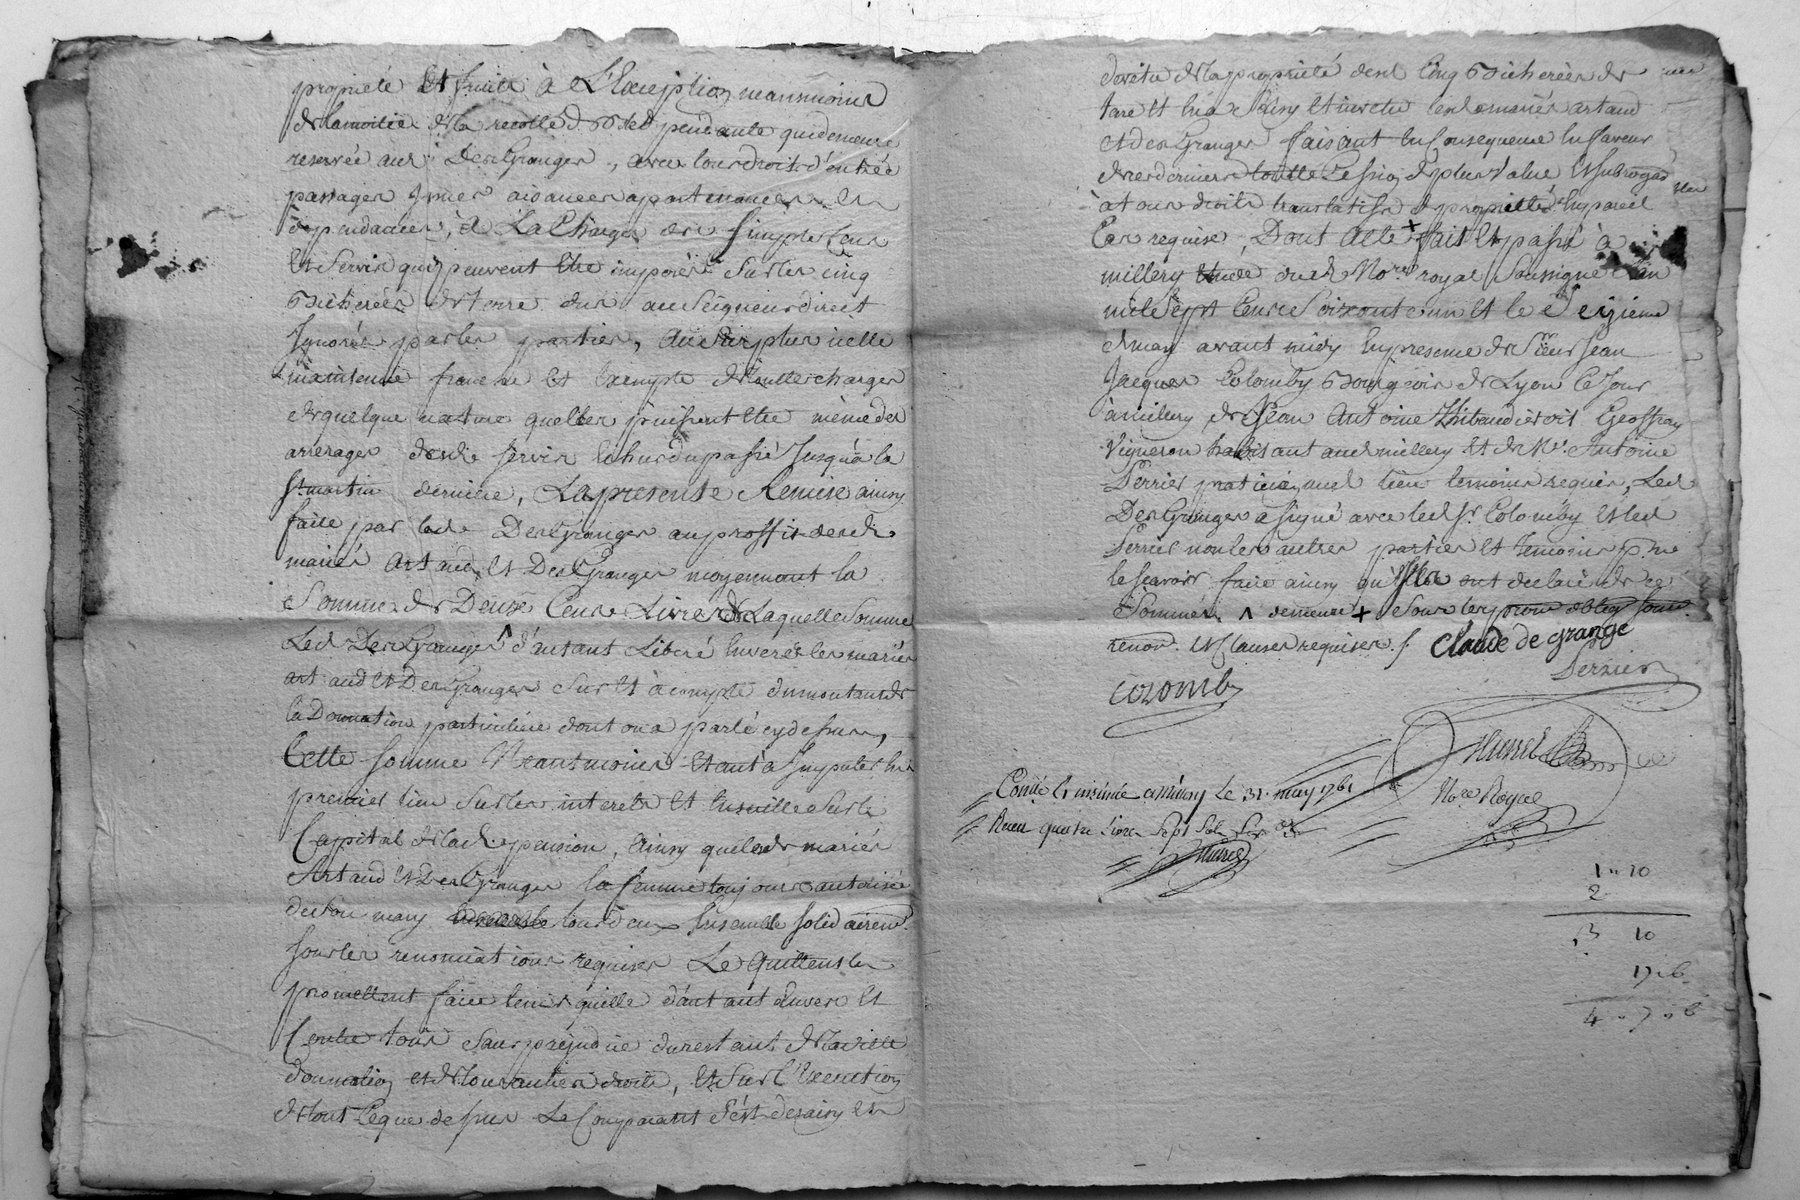 proprieté et fruits à L'Exception neanmoins
de la moitié de la recolte de bled pendante qui demeure
reservée aud. DesGranger, avec leurs droits d'entrée
passager prises aisancer apartenancer et
dependancer, à La Charge des simples Cens
et servis qui peuvent être imposés sur les cinq
Bicherées de terre dues au Seigneur direct
Ignorés par les parties, du surplus icelle
maintenue franche et Exempte de toutes charges
de quelque nature quelles puissent être même des
arrerages desd. servis Echus du passé Jusqu'à la
St martin derniere, La presente Remise ainsy
faite par led. DesGranger au proffit desd.
mariés Artaud et DesGranger moyennant la
Somme de Deux Cent Livres de Laquelle Somme
Led. DesGranger ^ d'autant Liberé Envers les mariés
artaud et DesGranger Sur et à compte du montant de
la Donnation particuliere dont on a parlé cy dessus,
Cette somme Neantmoins Etant à Imputer En
premier lieu Sur les interets et Ensuitte Sur le
Capital de lad. pension, Ainsy que lesd. mariés
Artaud et DesGranger la femme toujours autorisée
de son mary tous deux Ensemble solidairemt
sous les renonciations requises Le quittent et
promettent faire tenir quitte d'autant Envers et
Contre tous sans prejudice du restant de la ditte
donnation et de tous autres droits, Et sur l'Execution
de tout Ce que dessus Le Comparant s'est desaisy et
devetu de la propriété desd. Cinq Bicherées de
terre et En a saisy et investu lesd. mariés artaud
et des Granger faisant En Consequence En faveur
de ces derniers toutte Cession de plus value Et subrogaon
à tous droits translatifs de propriété En pareil
Cas requise, Dont Acte + fait et passé à
millery Etude dud. Nore royal Soussigné L'an
mile sept Cents soixante un et le Seizieme
de may avant midy En presence de Sieur Jean
Jacques Colomby Bourgeois de Lyon Ce Jour
à millery de Jean Antoine Thibaudier dit Geoffray
Vigneron habitant aud. millery et de Mr. Antoine
Perrier praticien aud. lieu temoins requis, Led.
DesGranger a signé avec led. Sr Colomby et led.
Perrier non les autres parties et temoins p. ne
le scavoir faire ainsy qu'ils ont declaré de ce
Sommés ^ demeure + Sous les prom. oblig. soum.
renon. et clauses requises. /. Claude de grange
Perrier
colomby
Nore Royal
Conté et insinué à millery Le 31. may 1761
Receu quatre livres Sept Sols Six ds
1 " 10
2
3 10
17 " 6
4 " 7 " 6